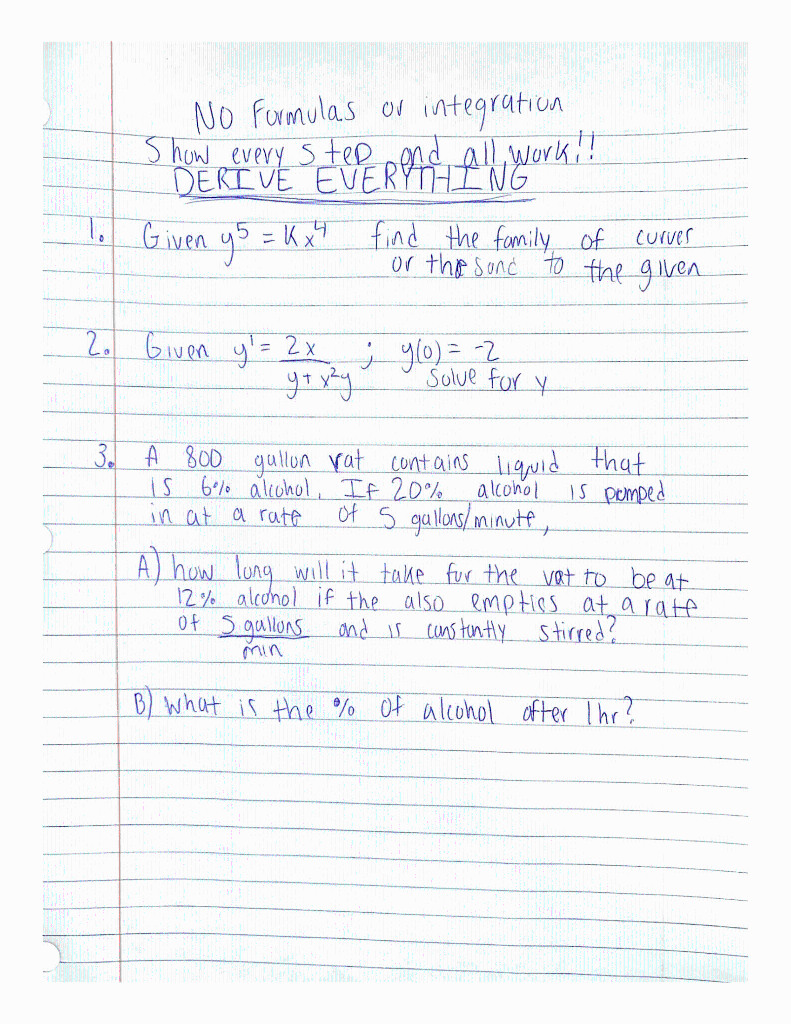 No Formulas or integration
Show every step and all work!!
DERIVE EVERYTHING
1. Given y⁵ = Kx⁴ find the family of curves
or tho sonc to the given
2. Given y' = 2x / y + x²y ; y(0) = -2
Solve for y
3. A 800 gallon vat contains liquid that
is 6% alcohol. If 20% alcohol is pomped
in at a rate of 5 gallons/minute,
A) how long will it take for the vat to be at
12% alcohol if the also empties at a rate
of 5 gallons / min and is constantly stirred?
B) What is the % of alcohol after 1 hr?